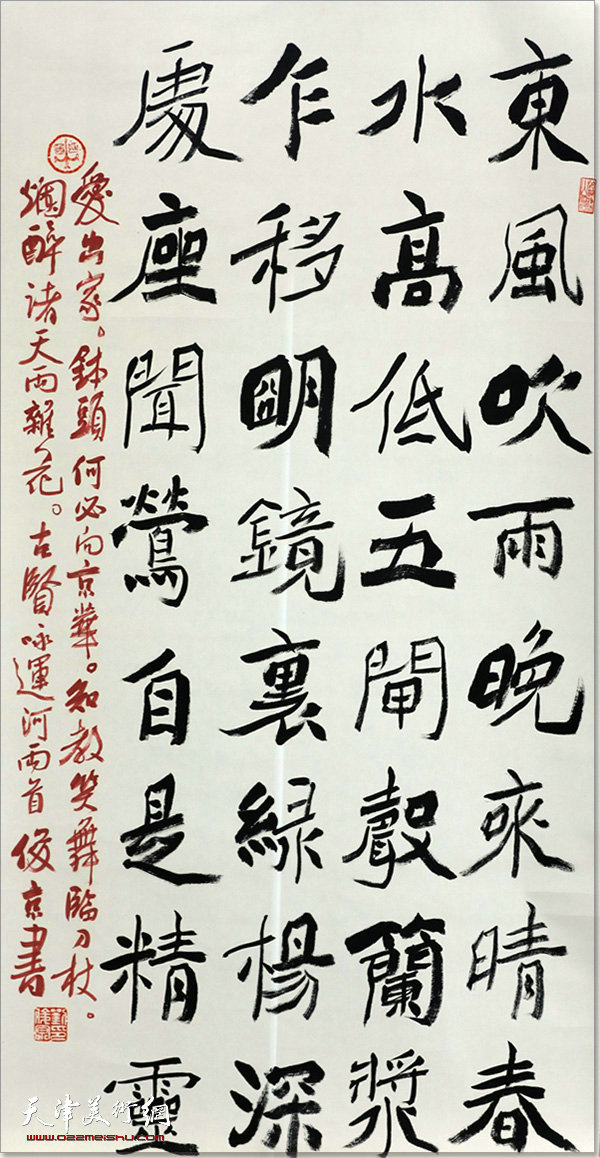 東風吹雨晚來晴春
水高低五閘聲蘭槳
乍移明鏡裏綠楊深
處座聞鶯自是精靈
愛出家。鉢頭何必向京華。知教笑舞臨刀杖。
爛醉諸天雨雜花。古賢咏運河兩首 俊京書
天津美術網
www.022meishu.com